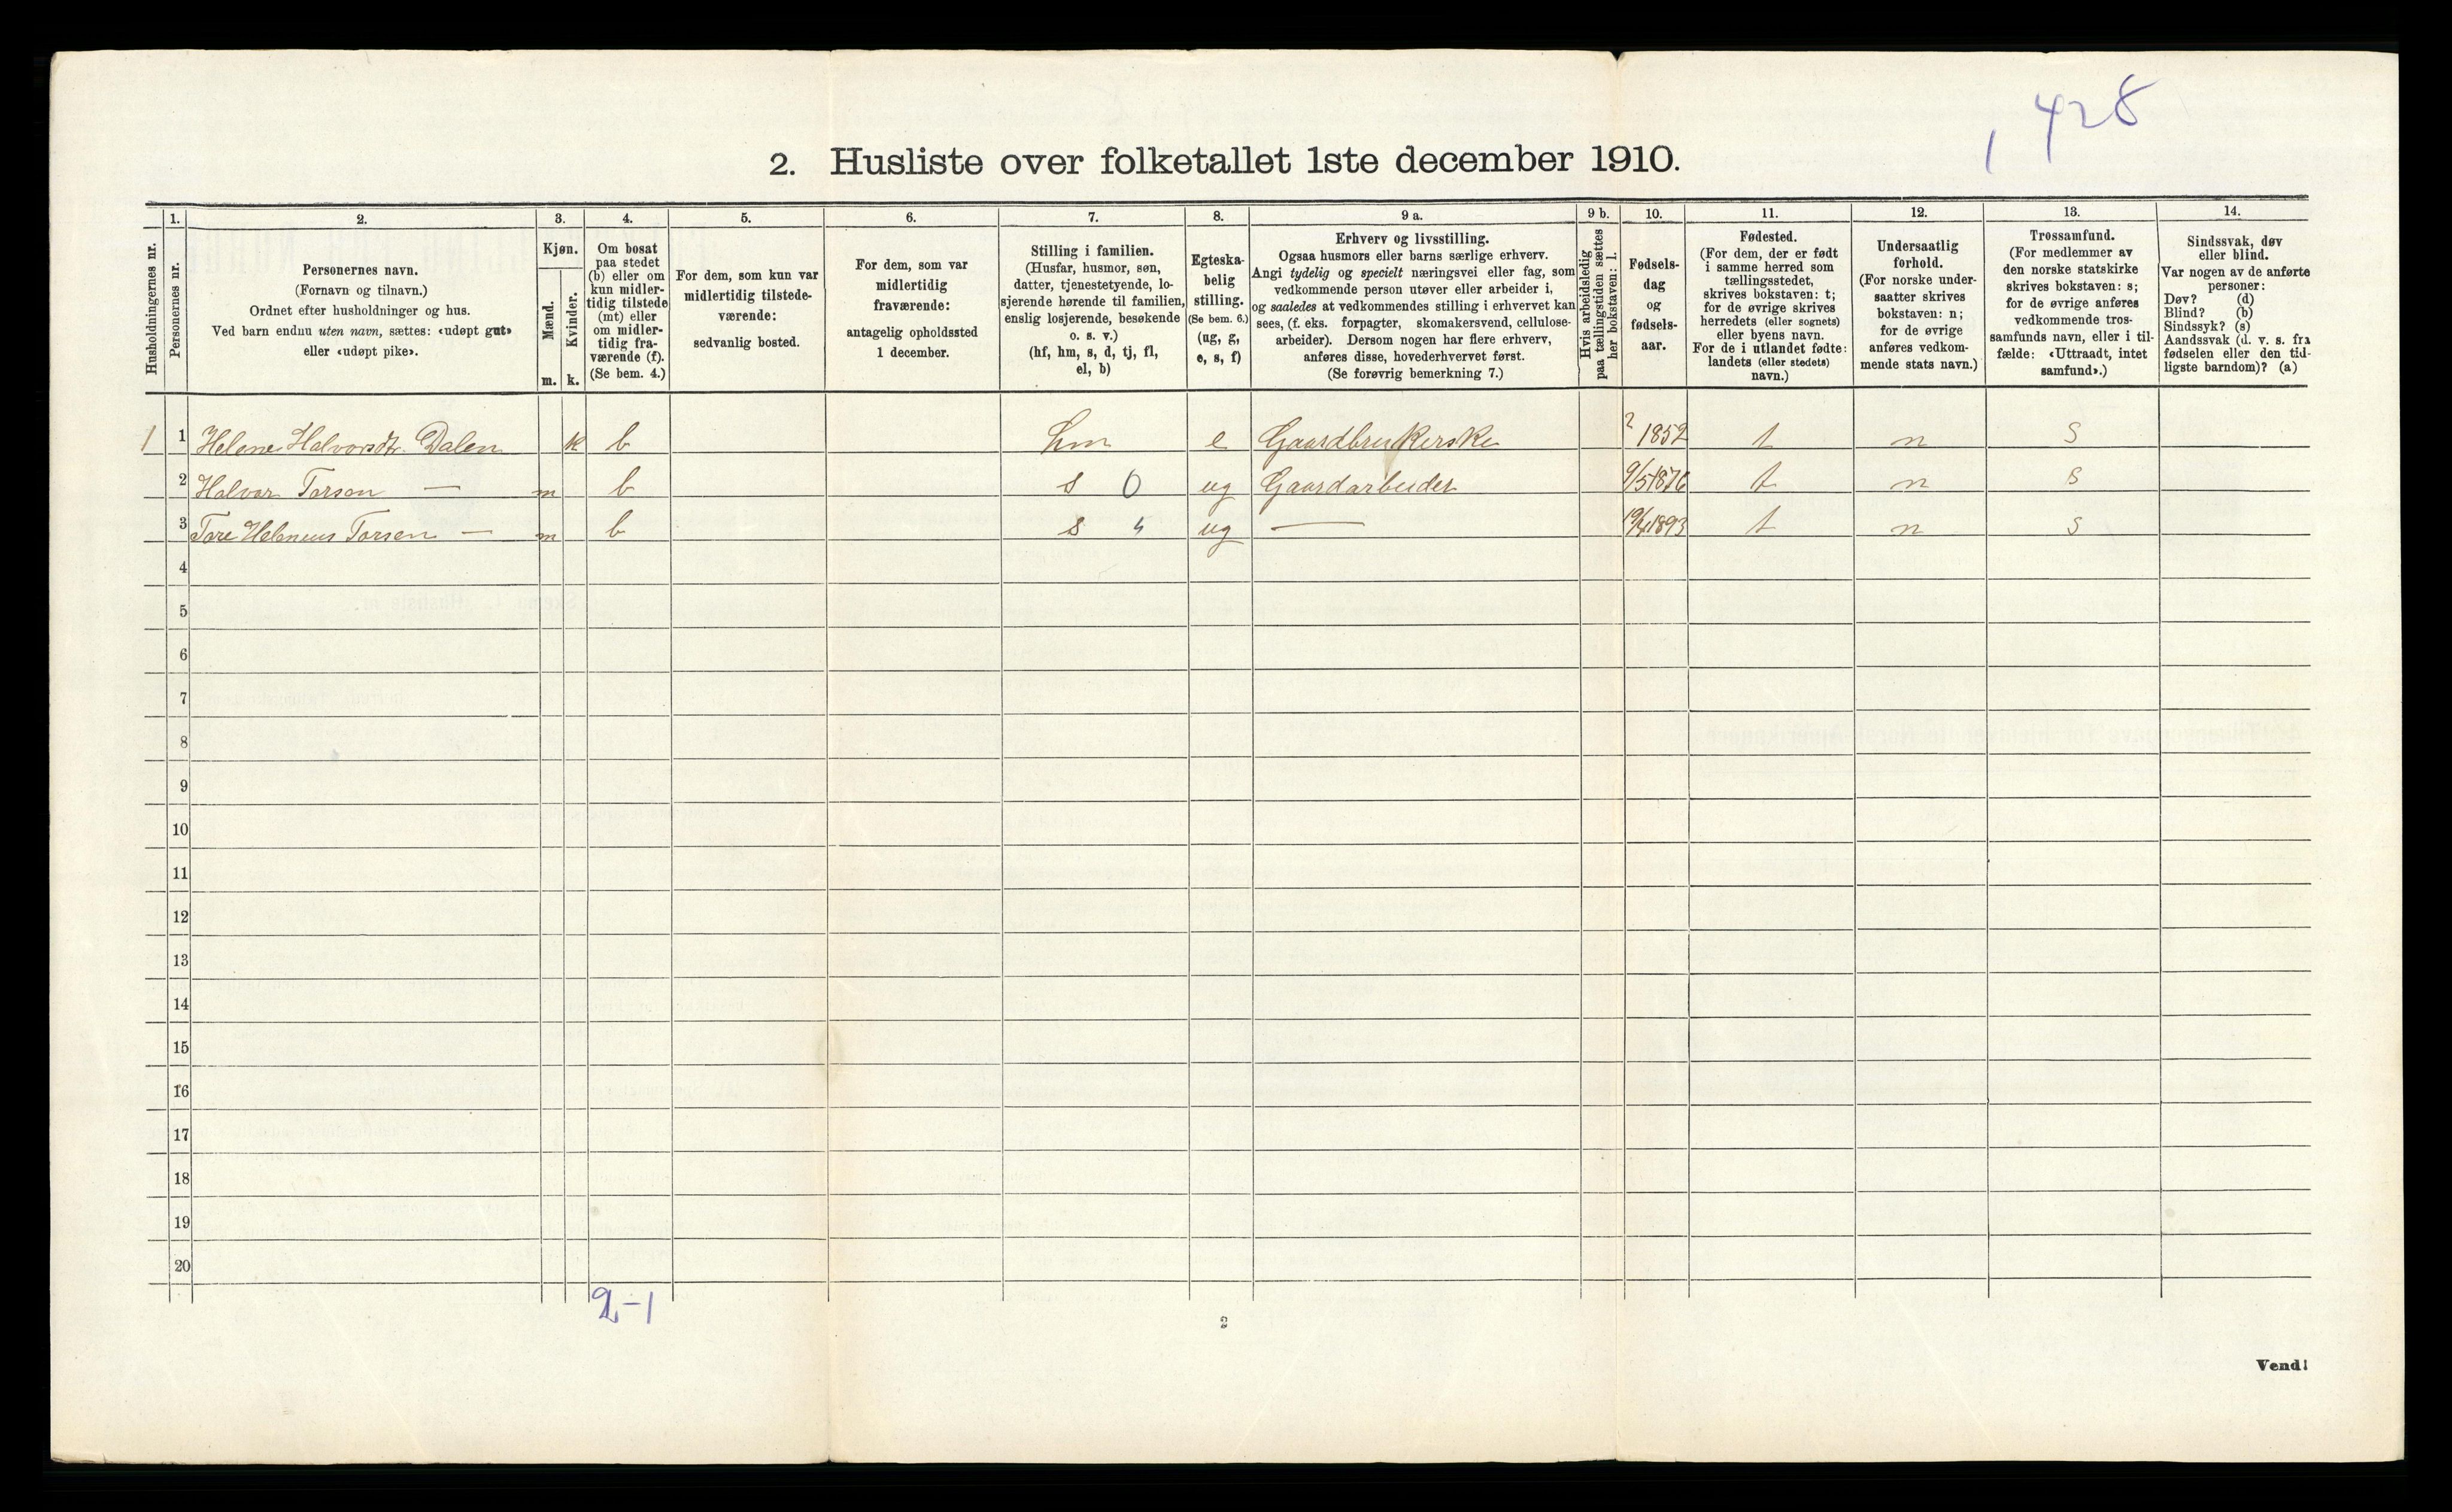 1 428
2. Husliste over folketallet 1ste december 1910.
Husholdningernes nr.
1.
Personernes nr.
2.
Personernes navn.
(Fornavn og tilnavn.)
Ordnet efter husholdninger og hus.
Ved barn endnu uten navn, sættes: «udøpt gut»
eller «udøpt pike».
3.
Kjøn.
Mænd.
m.
Kvinder.
k.
4.
Om bosat
paa stedet
(b) eller om
kun midler-
tidig tilstede
(mt) eller
om midler-
tidig fra-
værende (f).
(Se bem. 4.)
5.
For dem, som kun var
midlertidig tilstede-
værende:
sedvanlig bosted.
6.
For dem, som var
midlertidig
fraværende:
antagelig opholdssted
1 december.
7.
Stilling i familien.
(Husfar, husmor, søn,
datter, tjenestetyende, lo-
sjerende hørende til familien,
enslig losjerende, besøkende
o. s. v.)
(hf, hm, s, d, tj, fl,
el, b)
8.
Egteska-
belig
stilling.
(Se bem. 6.)
(ug, g,
e, s, f)
9 a.
Erhverv og livsstilling.
Ogsaa husmors eller barns særlige erhverv.
Angi tydelig og specielt næringsvei eller fag, som
vedkommende person utøver eller arbeider i,
og saaledes at vedkommendes stilling i erhvervet kan
sees, (f. eks. forpagter, skomakersvend, cellulose-
arbeider). Dersom nogen har flere erhverv,
anføres disse, hovederhvervet først.
(Se forøvrig bemerkning 7.)
9 b.
Hvis arbeidsledig
paa tællingstiden sættes
her bokstaven: l.
10.
Fødsels-
dag
og
fødsels-
aar.
11.
Fødested.
(For dem, der er født
i samme herred som
tællingsstedet,
skrives bokstaven: t;
for de øvrige skrives
herredets (eller sognets)
eller byens navn.
For de i utlandet fødte:
landets (eller stedets)
navn.)
12.
Undersaatlig
forhold.
(For norske under-
saatter skrives
bokstaven: n;
for de øvrige
anføres vedkom-
mende stats navn.)
13.
Trossamfund.
(For medlemmer av
den norske statskirke
skrives bokstaven: s;
for de øvrige anføres
vedkommende tros-
samfunds navn, eller i til-
fælde: «Uttraadt, intet
samfund».)
14.
Sindssvak, døv
eller blind.
Var nogen av de anførte
personer:
Døv? (d)
Blind? (b)
Sindssyk? (s)
Aandssvak (d. v. s. fra
fødselen eller den tid-
ligste barndom)? (a)
1 1 Helene Halvorsdtr. Dalen k b hm e Gaardbrukerske ? 1852 t n s
2 Halvor Torsen — m b s 0 ug Gaardarbeider 9/5 1876 t n s
3 Tore Heleneus Torsen — m b s ug — 1893 t n s
4
5
6
7
8
9
10
11
12
13
14
15
16
17
18
19
20
2-1
2
Vend!